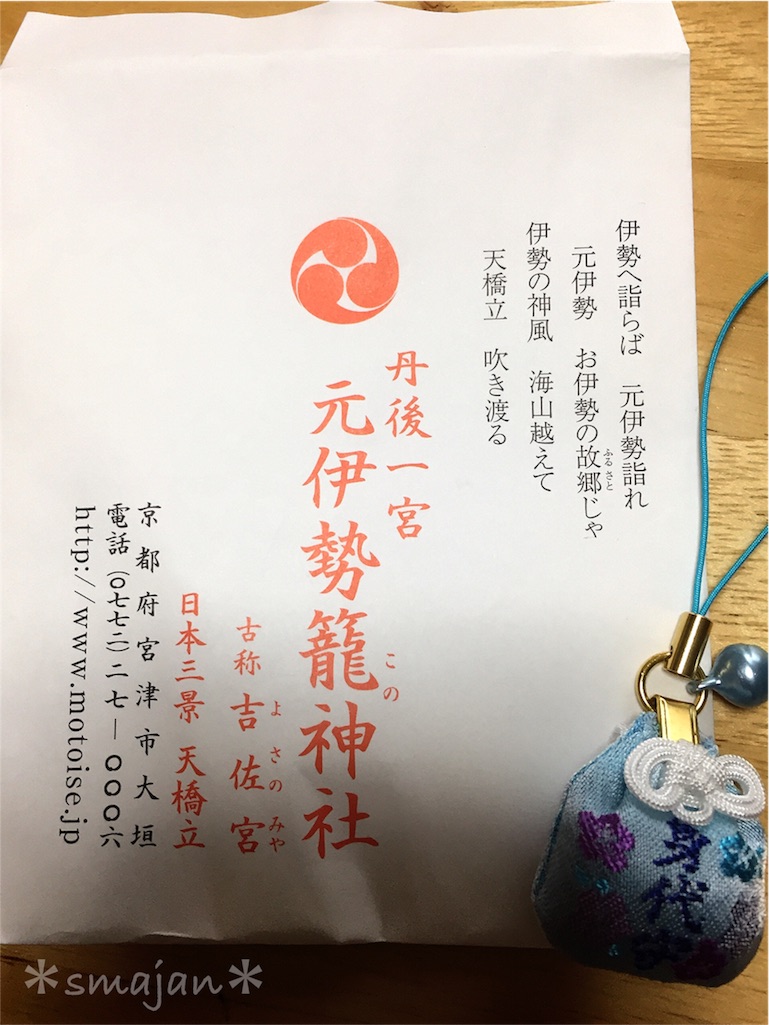 伊勢へ詣らば　元伊勢詣れ
元伊勢　お伊勢の故郷じゃ
ふるさと
伊勢の神風　海山越えて
天橋立　吹き渡る
丹後一宮
元伊勢籠神社
この
古称 吉佐宮
よさのみや
日本三景 天橋立
京都府宮津市大垣
電話（〇七七二）二七ー〇〇〇六
http://www.motoise.jp
身代守
＊smajan＊